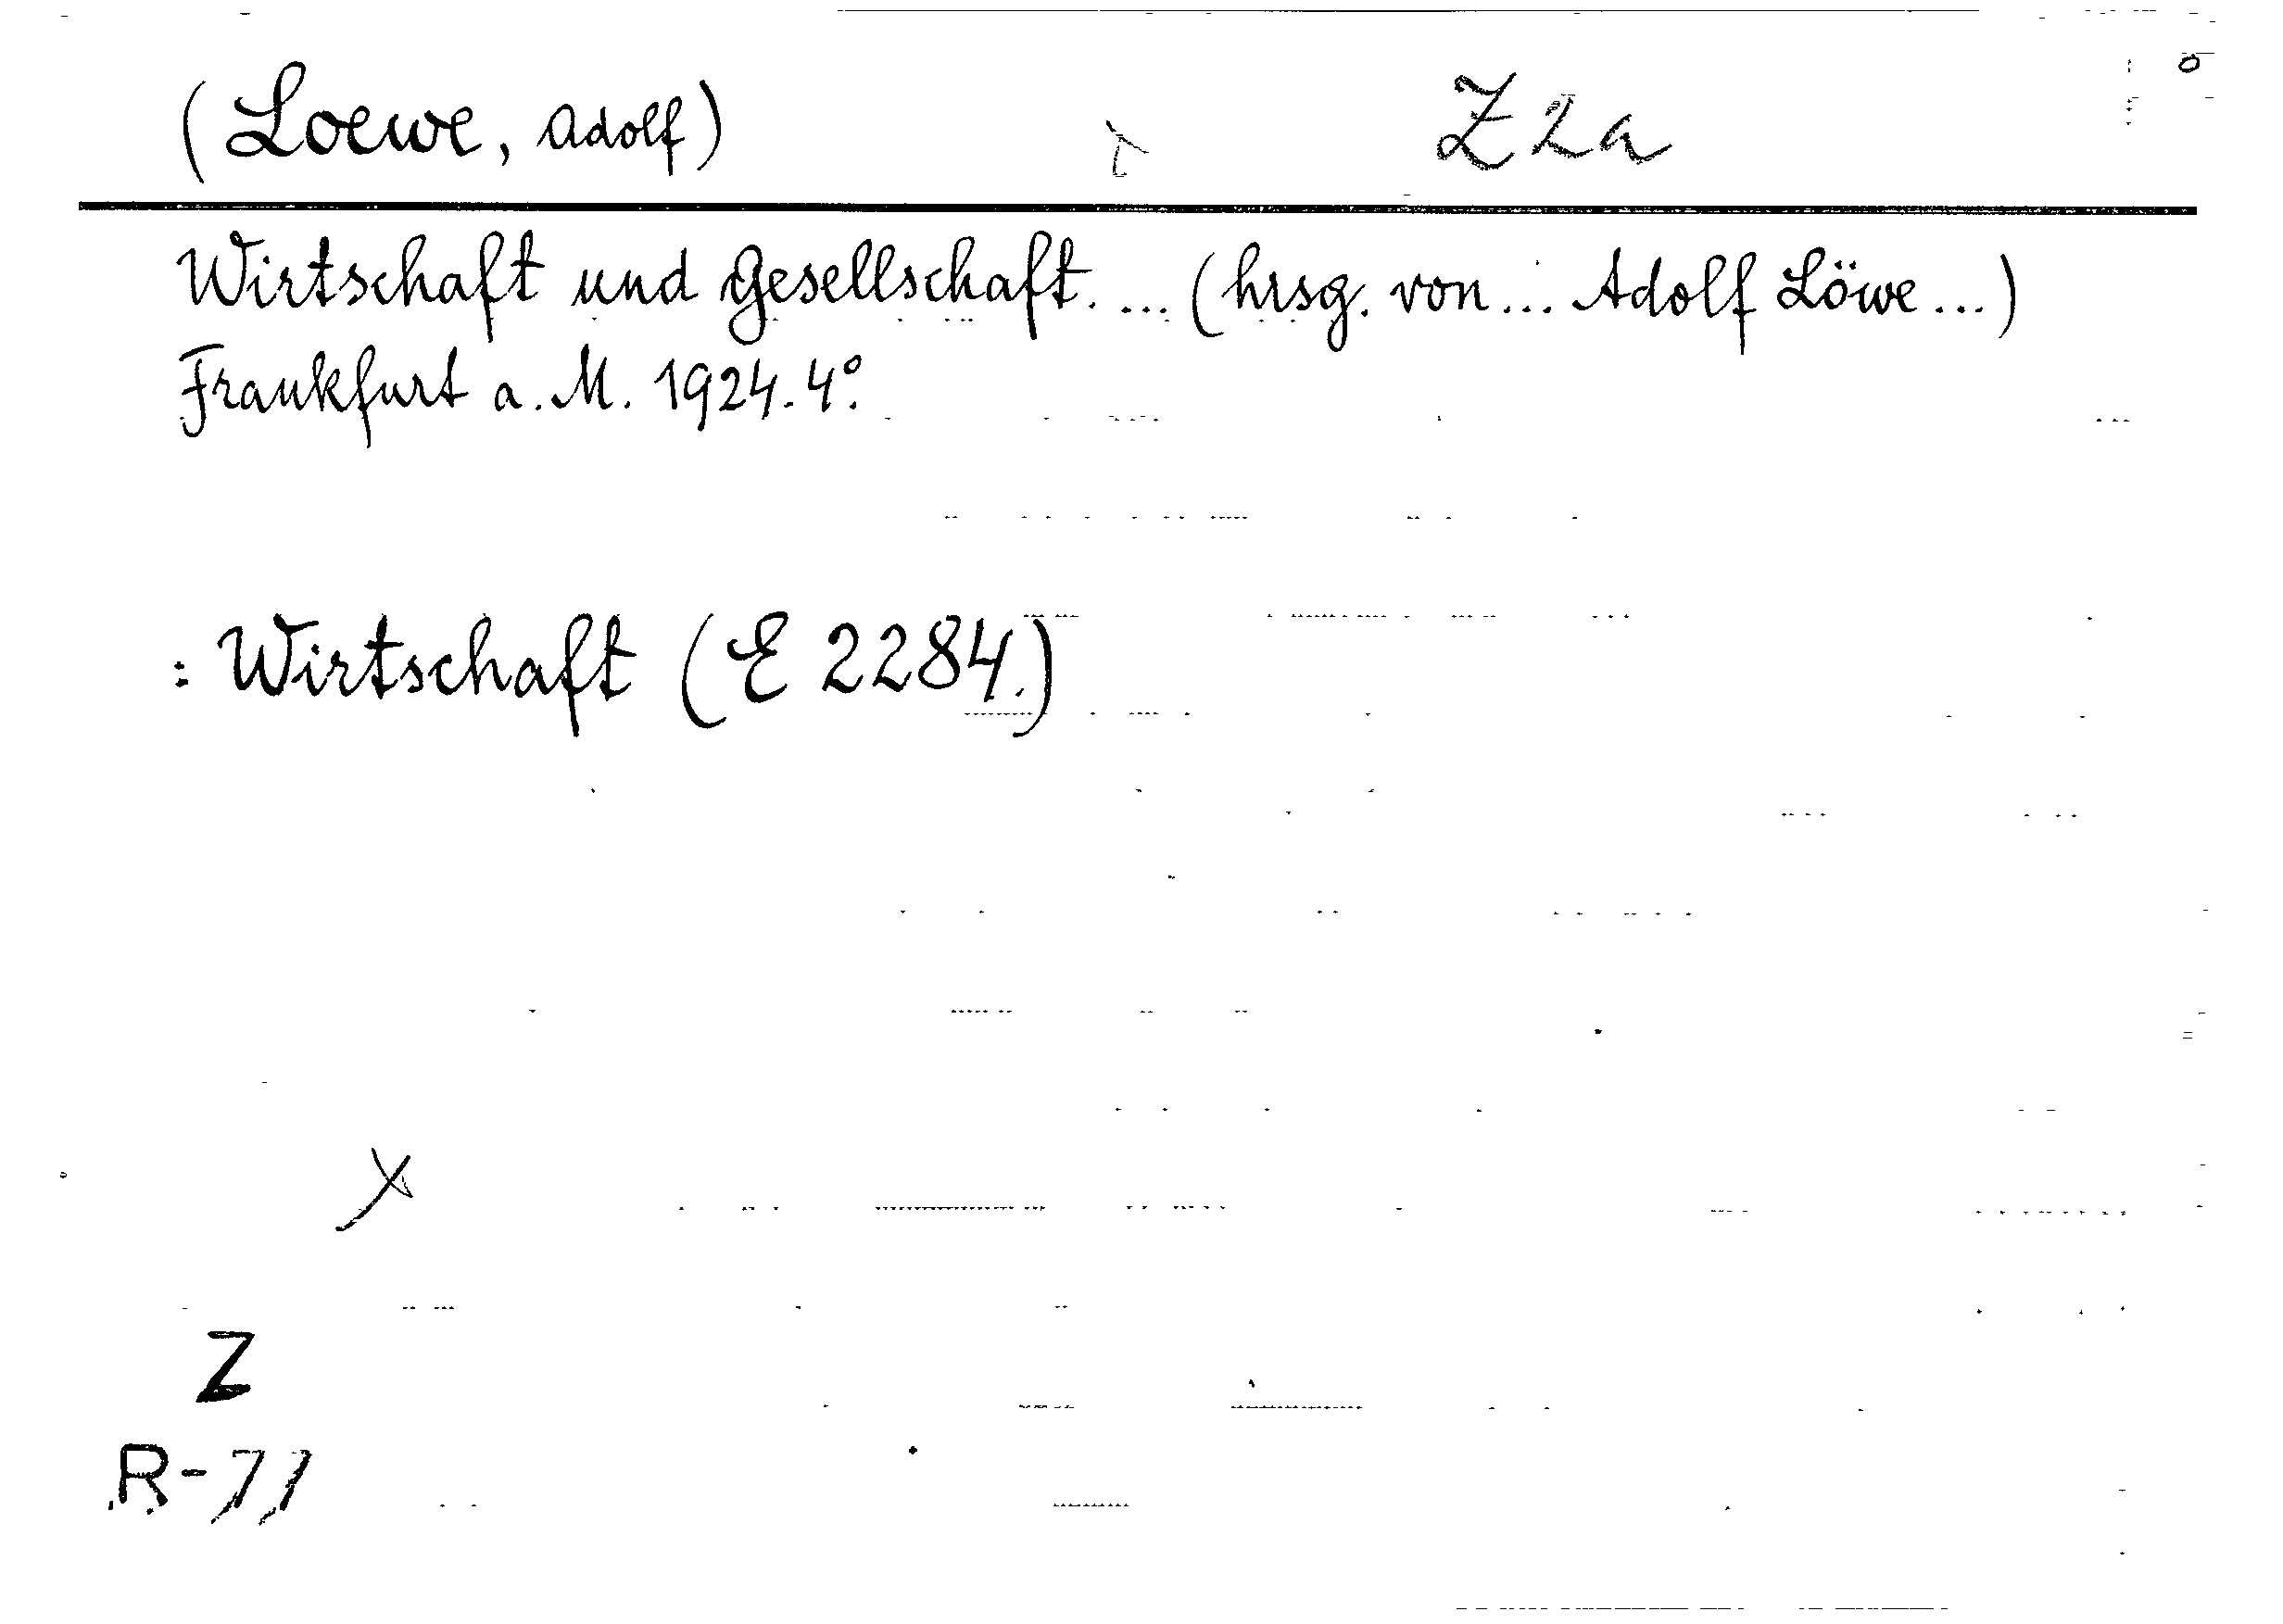 (Loewe, Adolf) Z 2a
Wirtschaft und Gesellschaft. ... (hrsg. von ... Adolf Löwe ...)
Frankfurt a. M. 1924. 4°.
: Wirtschaft (E 2284.)
Z
R-77